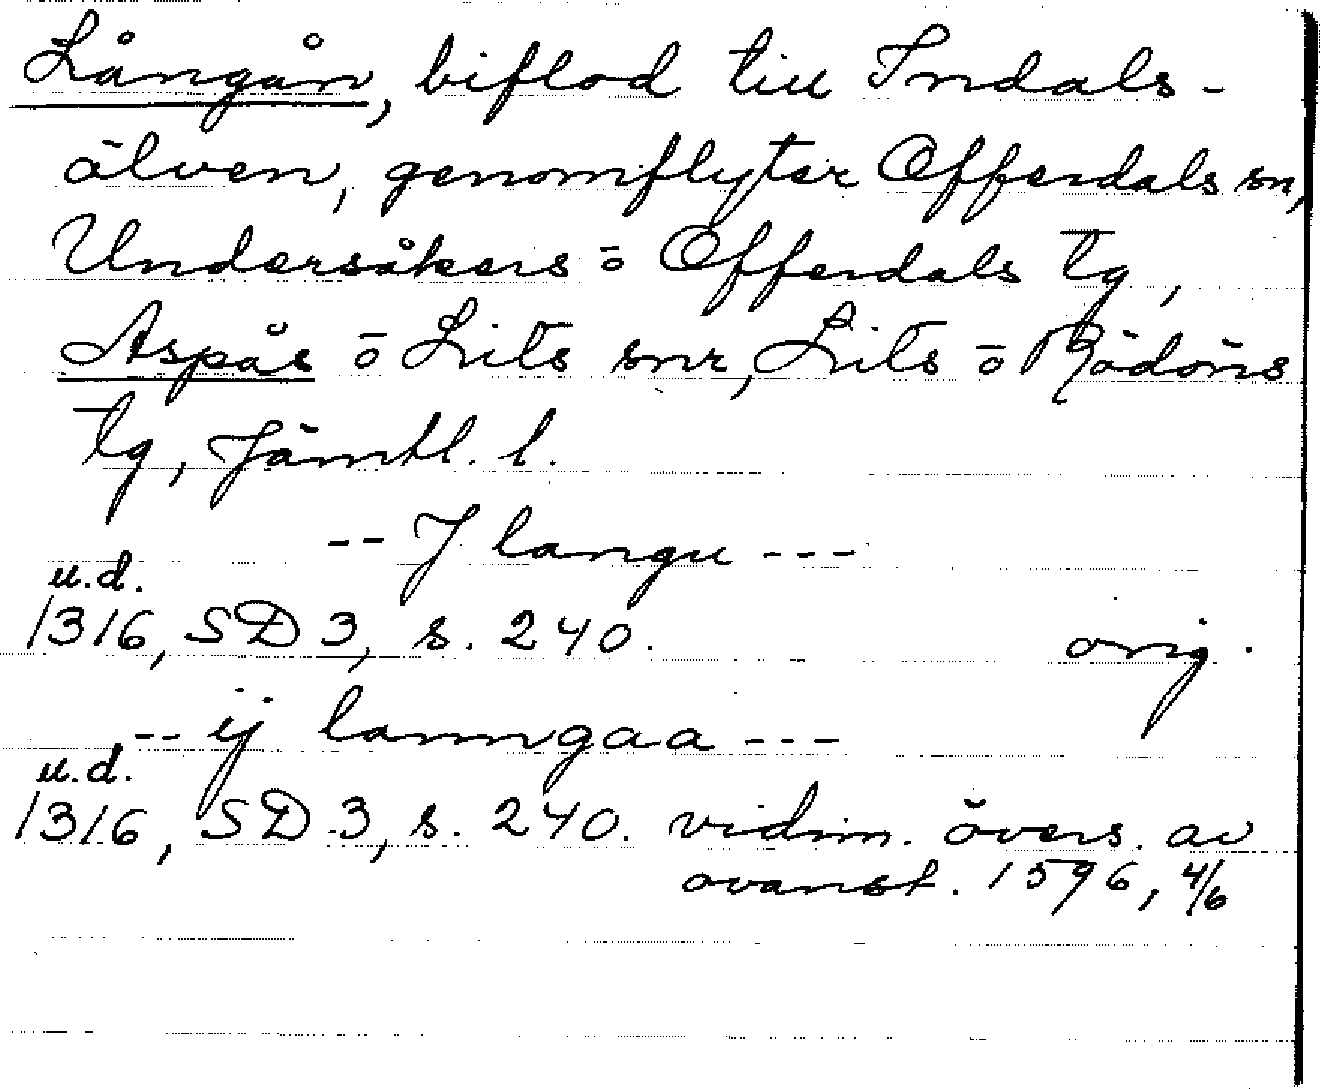 Långån, biflod till Indals-
älven, genomflyter Offerdals sn,
Undersåkers o Offerdals tg,
Aspås o Lits snr, Lits o Rödöns
tg, Jämtl. l.
-- J langu ---
u.d.
1316, SD 3, s. 240. orig.
-- ij lanngaa ---
u.d.
1316, SD 3, s. 240. vidim. övers. av
ovanst. 1596, 4/6